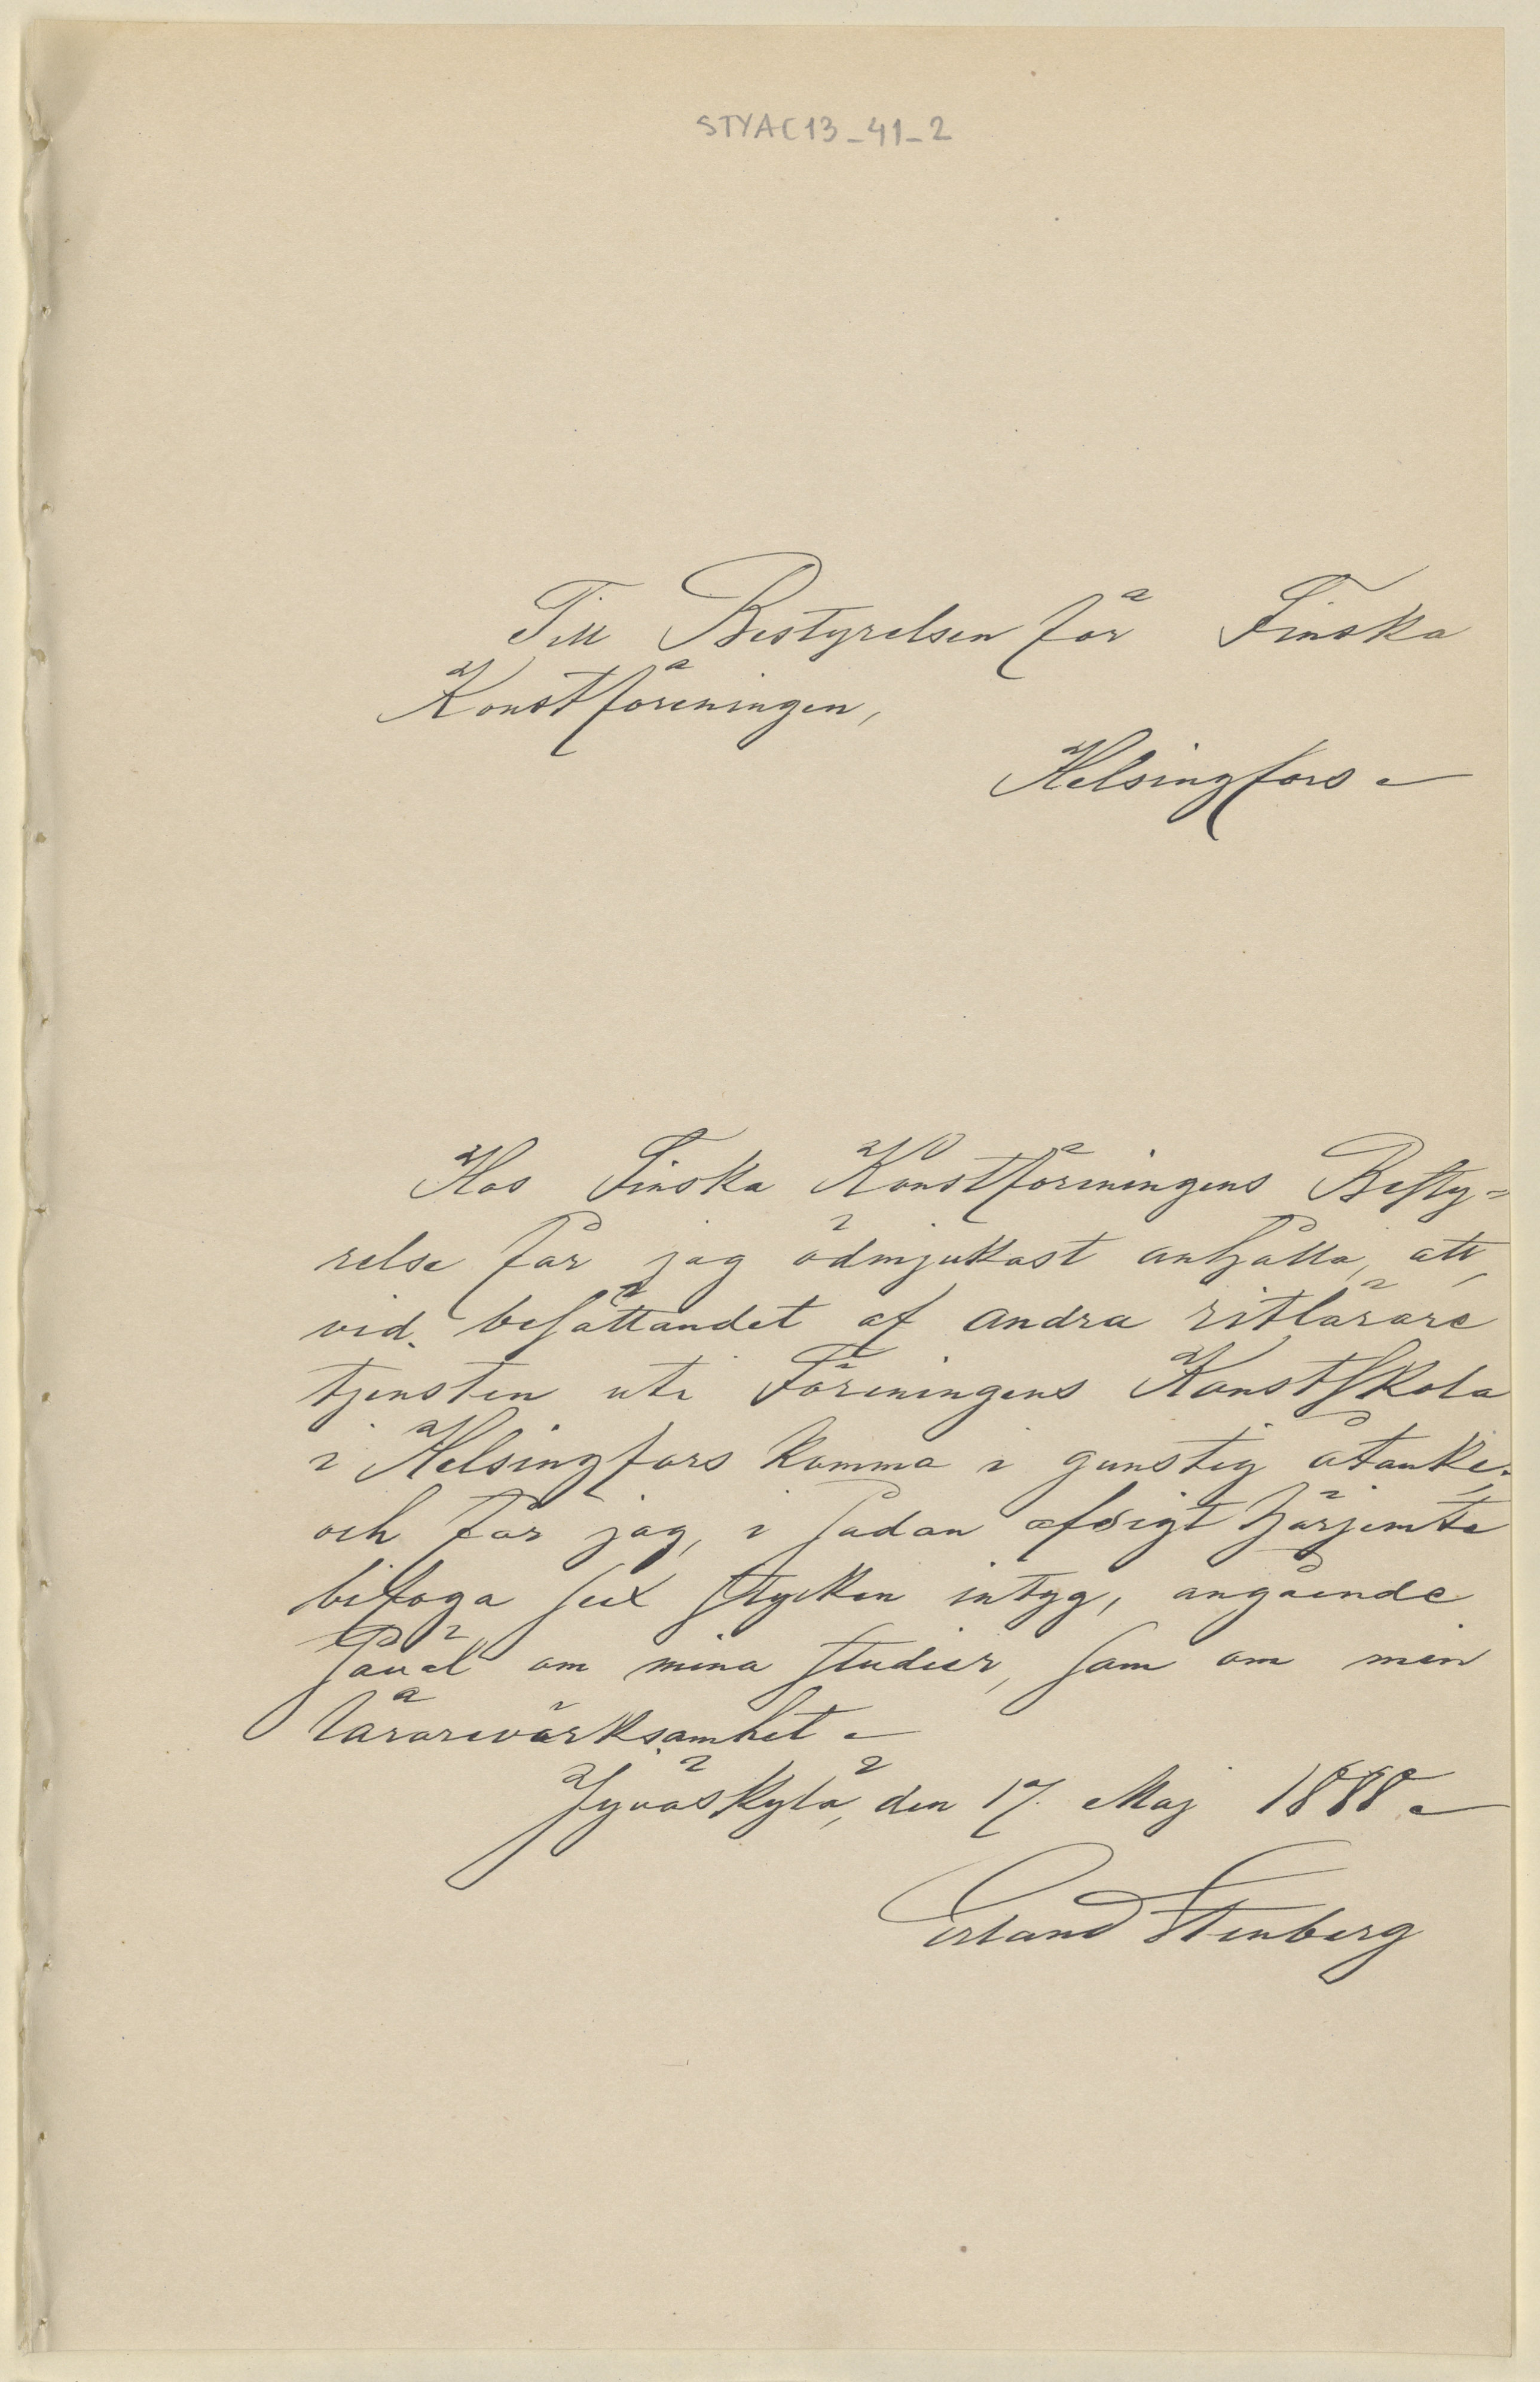 STYAC13_41_2
Till Bestyrelsen för Finska
Konstföreningen,
Helsingfors
Hos Finska Konstföreningens Besty-
relse får jag ödmjukast anhålla, att,
vid besättandet af andra ritlärare
tjensten uti Föreningens Konstskola
i Helsingfors komma i gunstig åtanke,
och får jag, i sådan afsigt härjemte
bifoga sex stycken intyg, angående
såväl om mina studier, som om min
lärarevärksamhet
Jyväskylä, den 17. Maj 1888
Erland Stenberg